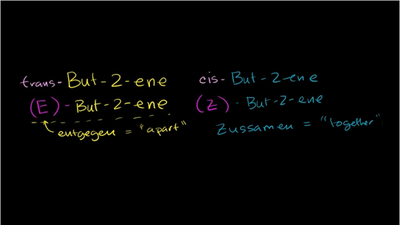 trans- But-2-ene
(E)- But-2-ene
entgegen = "apart"
cis- But-2-ene
(Z)- But-2-ene
Zussamen = "together"